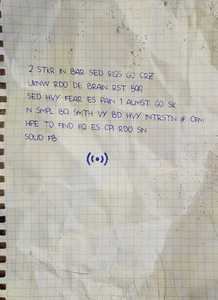 2 STKR IN BAR SED RSS GO CRZ
UKNW RDO DE BRAIN RST BAR
SED HVY FEAR ES PAIN 1 ALMST GO SK
N SMPL BQ SMTH VY BD HVY INTRSTN # OPN
HPE TO FIND HQ ES CPI RDO SN
SOLID FB
((•))